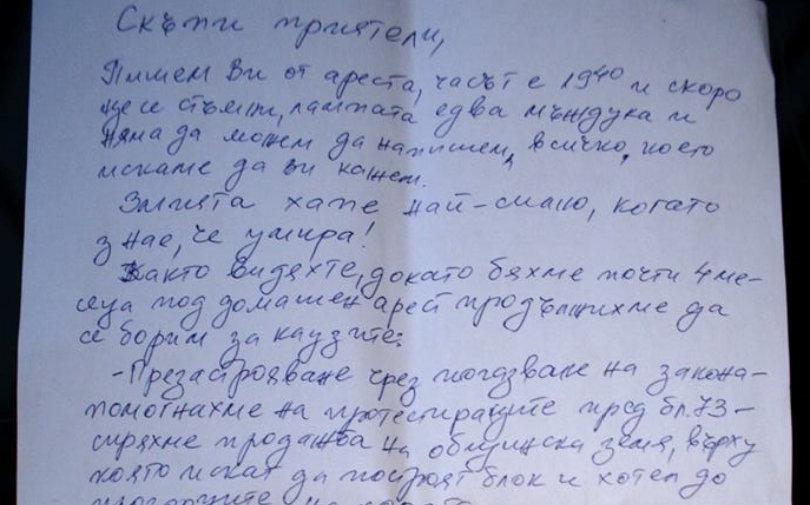 Скъпи приятели,
Пишем Ви от ареста, часът е 19⁴⁰ и скоро
ще се стъмни, лампата едва мъждука и
няма да можем да напишем, всичко, което
искаме да ви кажем.
Змията хапе най-силно, когато
знае, че умира!
Както видяхте, докато бяхме почти 4 ме-
сеца под домашен арест продължихме да
се борим за каузите:
-Презастрояване чрез погазване на закона-
помогнахме на протестиращите пред бл.73-
спряхме продажба на общинска земя, върху
която искат да построят блок и хотел до
прозорците на хората